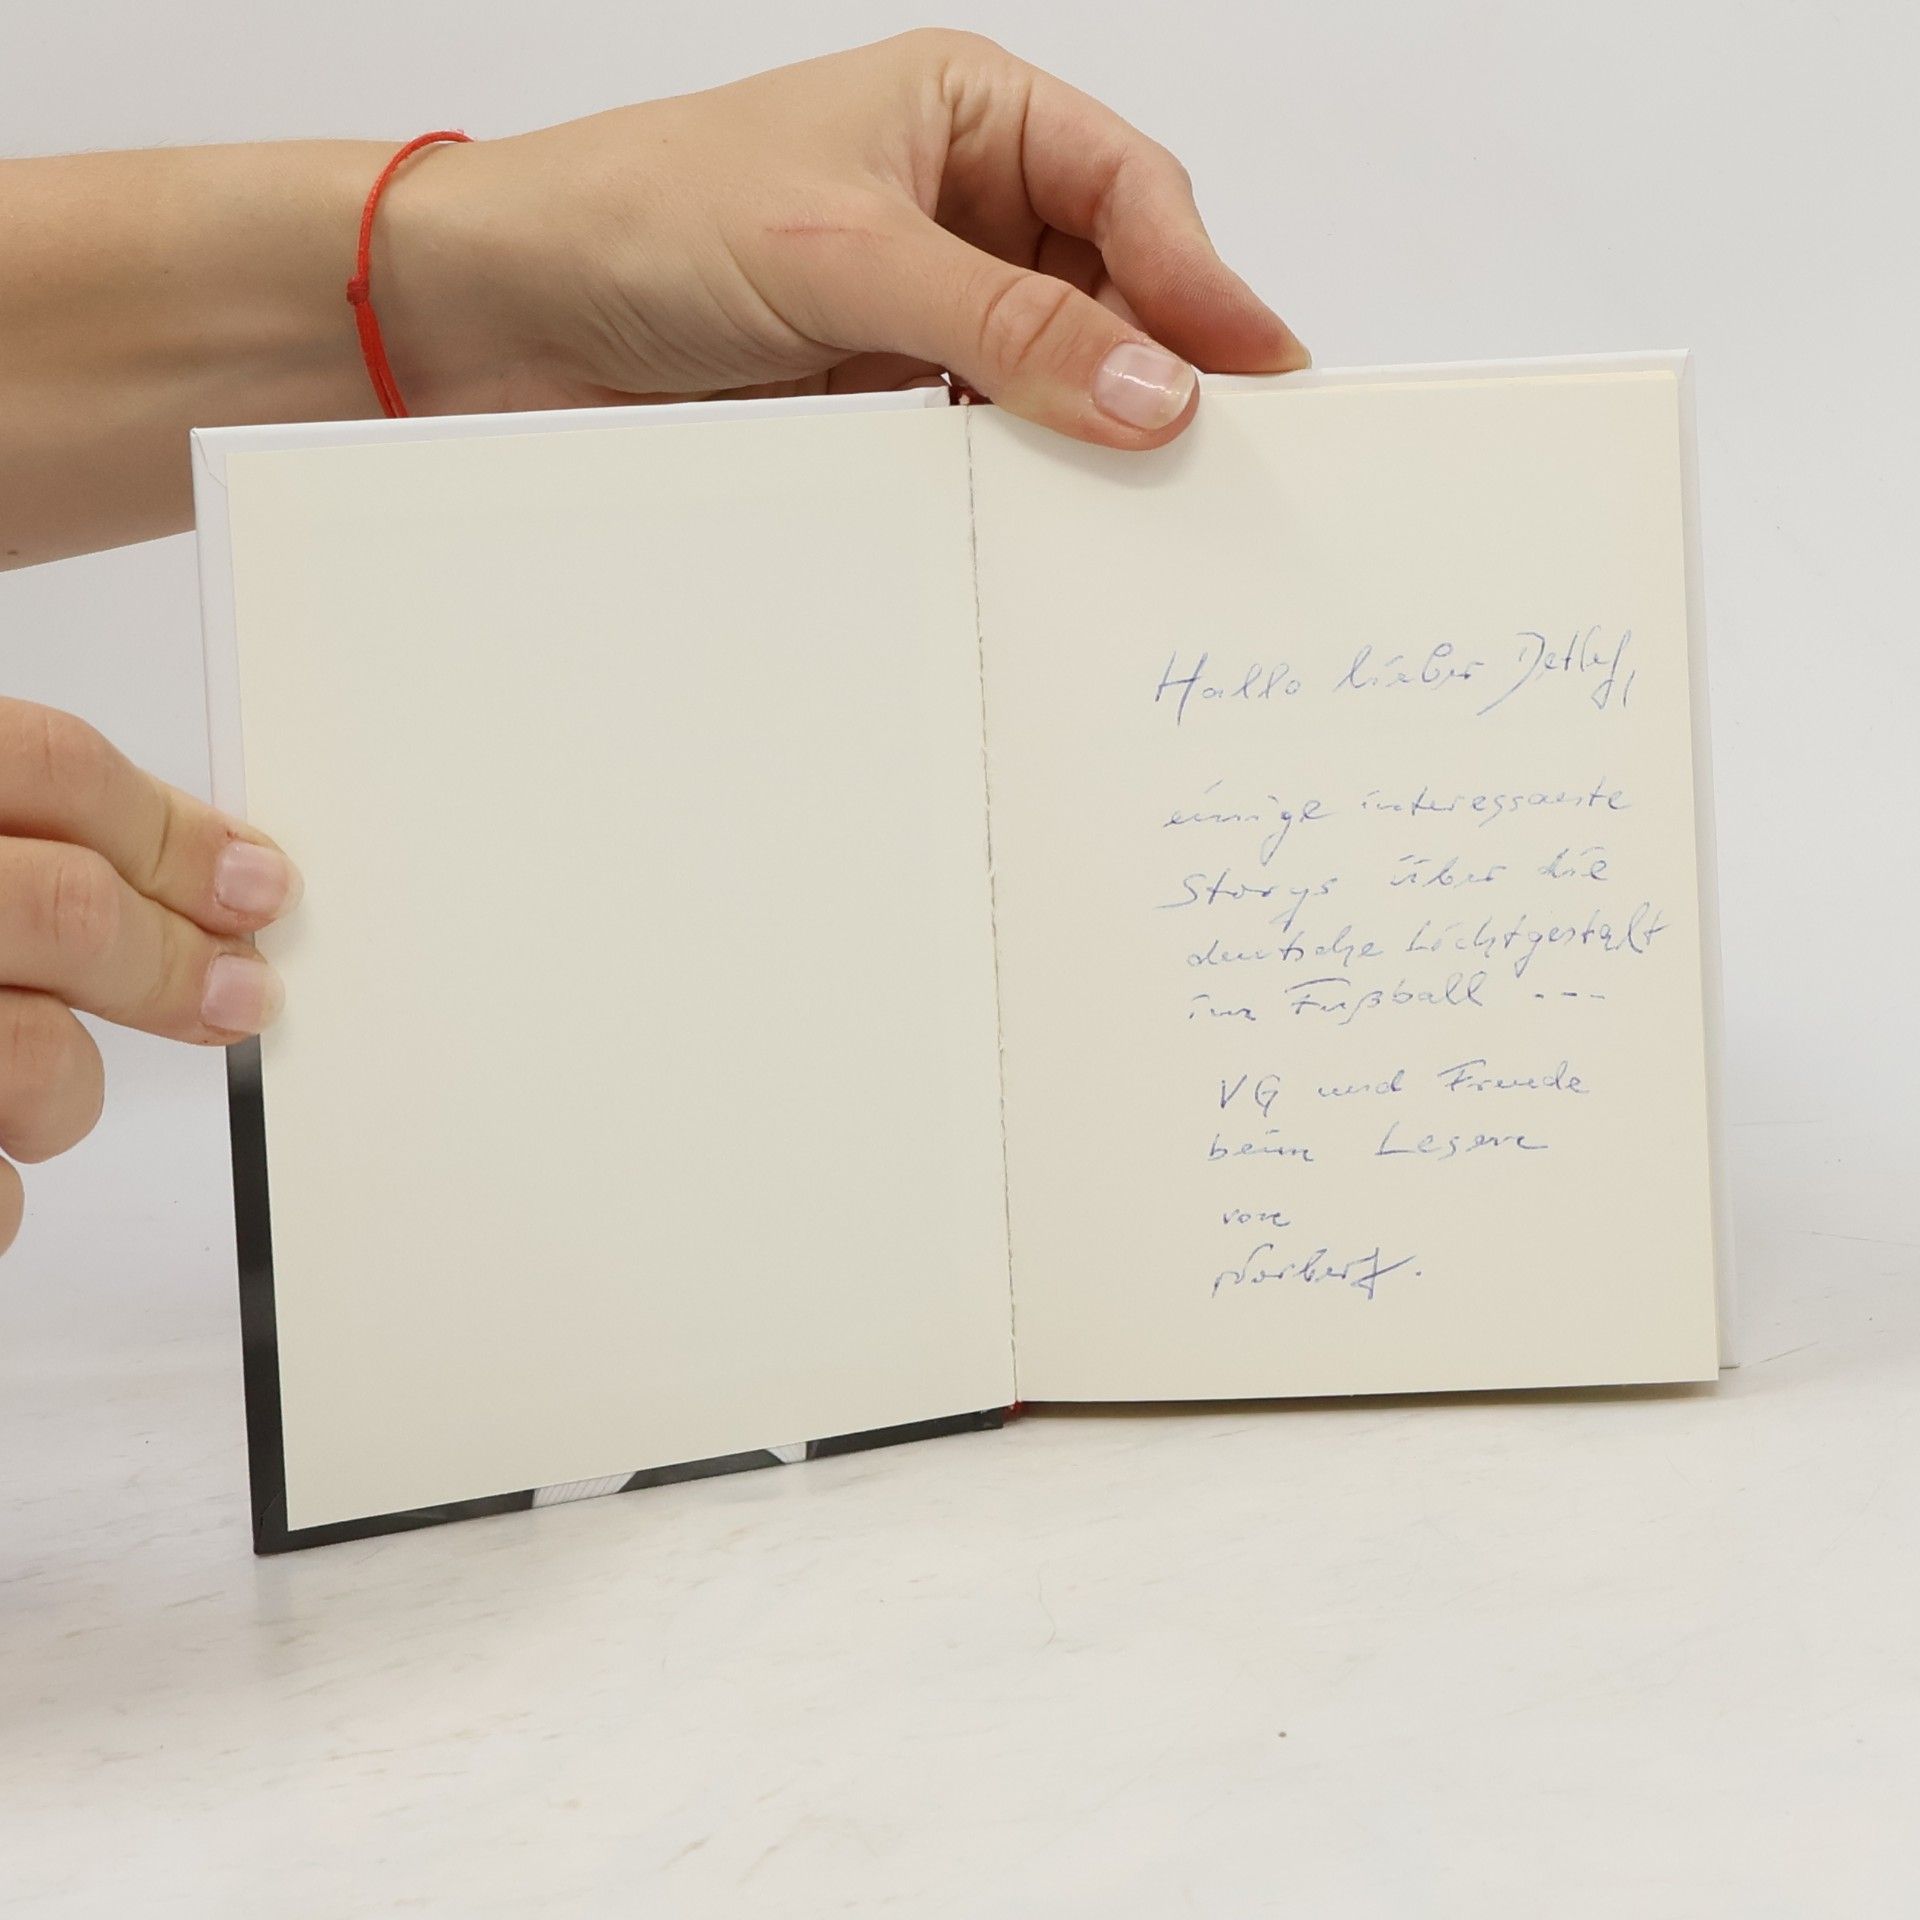 Hallo lieber Detlef,
einige interessante
Storys über die
deutsche Lichtgestalt
im Fußball ---
VG und Freude
beim Lesen
von
Norbert.